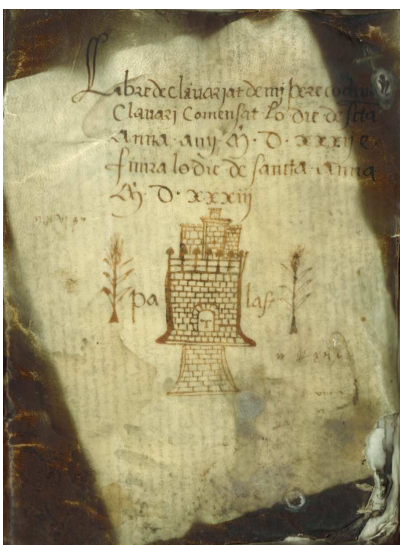 Libre de clavariat de mi pere
Clavari Comensat lo die de scta
Anna any M. D. xxxii e
finira lo die de sancta anna
M. D. xxxiij
pa las